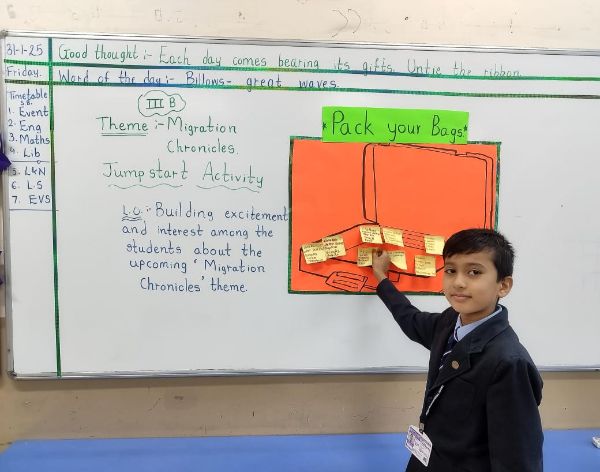 31-1-25
Friday.
Good thought :- Each day comes bearing its gifts. Untie the ribbon.
Word of the day :- Billows - great waves.
Timetable
1. Event
2. Eng
3. Maths
4. Lib
5. L&N
6. L.S
7. EVS
III B
Theme :- Migration
Chronicles.
Jumpstart Activity
L.O. :- Building excitement
and interest among the
students about the
upcoming 'Migration
Chronicles' theme.
*Pack your Bags.*